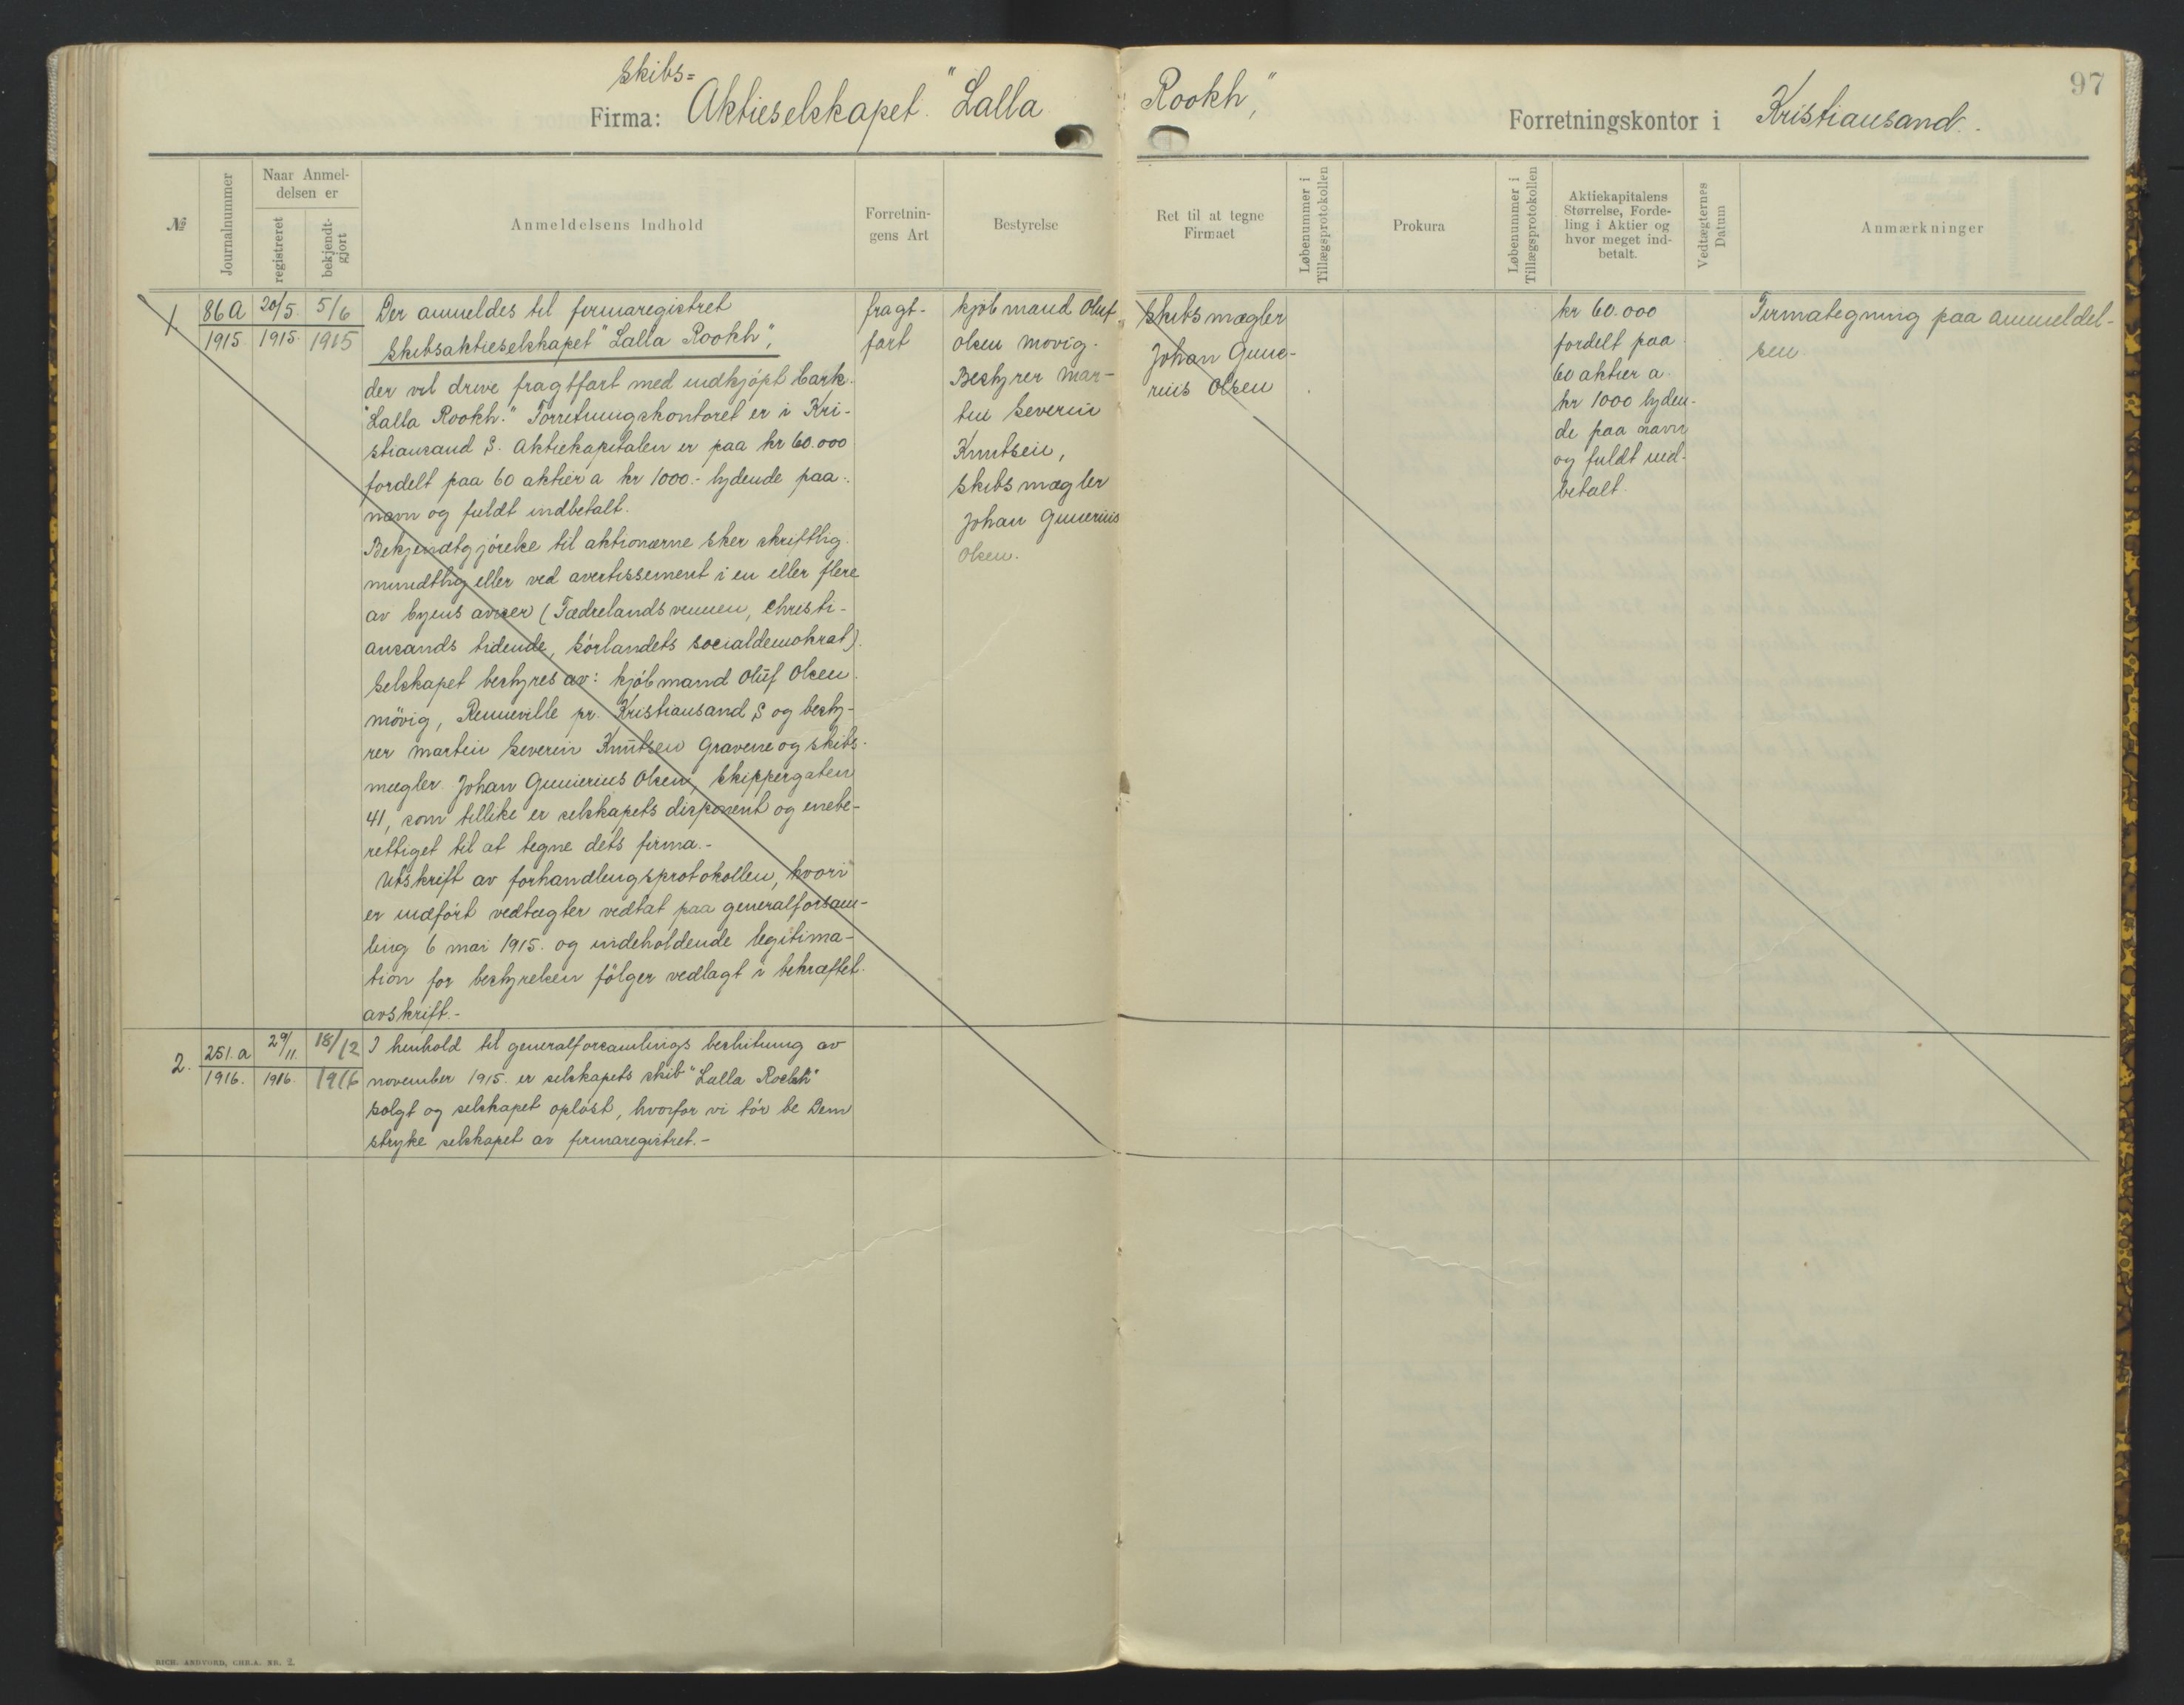 Skibs=
Firma: Aktieselskapet "Lalla Rookh"
97
Forretningskontor i Kristiansand.
№
Journalnummer
Naar Anmel-
delsen er
registreret
bekjendt-
gjort
Anmeldelsens Indhold
Forretnin-
gens Art
Bestyrelse
Ret til at tegne
Firmaet
Løbenummer i
Tillægsprotokollen
Prokura
Løbenummer i
Tillægsprotokollen
Aktiekapitalens
Størrelse, Forde-
ling i Aktier og
hvor meget ind-
betalt.
Vedtægternes
Datum
Anmærkninger
1.
86 A
1915
20/5
1915
5/6
1915
Der anmeldes til firmaregistret
Skibsaktieselskapet "Lalla Rookh",
der vil drive fragtfart med indkjöpt bark
"Lalla Rookh." Forretningskontoret er i Kri-
stiansand S. Aktiekapitalen er paa kr 60.000
fordelt paa 60 aktier a kr 1000.- lydende paa
navn og fuldt indbetalt.
Bekjendtgjörelse til aktionærne sker skriftlig
mundtlig eller ved avertissement i en eller flere
av byens aviser (Fædrelandsvennen, Christi-
ansands tidende, Sörlandets socialdemokrat).
Selskapet bestyres av: kjöbmand Oluf Olsen
Mövig, Renneville pr. Kristiansand S og besty-
rer Martin Severin Knutsen Gravene og skibs-
mægler Johan Gunerius Olsen, Skippergaten
41, som tillike er selskapets disponent og enebe-
rettiget til at tegne dets firma.-
Utskrift av forhandlingsprotokollen, hvori
er indfört vedtægter vedtat paa generalforsam-
ling 6 mai 1915. og indeholdende legitima-
tion for bestyrelsen fölger vedlagt i bekræftet
avskrift.-
fragt-
fart
kjöbmand Oluf
Olsen Movig.
Bestyrer Mar-
tin Severin
Knutsen,
Skibsmægler
Johan Gunerius
Olsen.
Skibsmægler
Johan Gune-
rius Olsen
kr 60.000
fordelt paa
60 aktier a
kr 1000 lyden-
de paa navn
og fuldt ind-
betalt.
Firmategning paa anmeldel-
sen
2.
251. a
1916.
29/11.
1916.
18/12
1916
I henhold til generalforsamlings beslutning av
november 1915. er selskapets skib "Lalla Rookh"
solgt og selskapet oplöst, hvorfor vi tör be Dem
stryke selskapet av firmaregistret.-
RICH. ANDVORD, CHR.A. NR. 2.